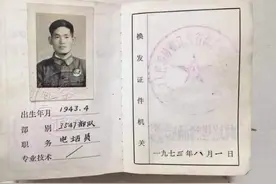 出生年月 1943.4
部 别 3547部队
职 务 电话员
专业技术
换发证件机关
一九七五年八月一日